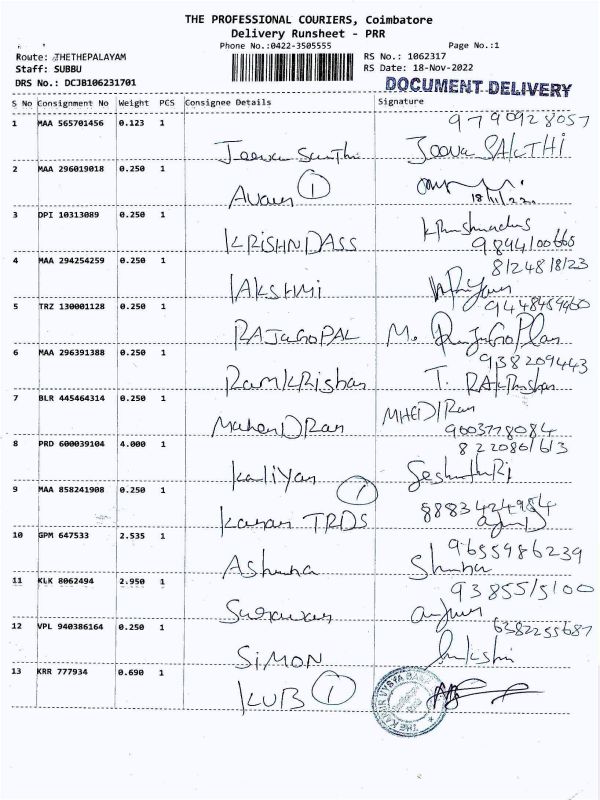 THE PROFESSIONAL COURIERS, Coimbatore
Delivery Runsheet - PRR
Phone No.:0422-3505555
Page No.:1
Route: THETHEPALAYAM
RS No.: 1062317
Staff: SUBBU
RS Date: 18-Nov-2022
DRS No.: DCJB106231701
DOCUMENT DELIVERY
S No Consignment No Weight PCS Consignee Details Signature
9790928057
1 MAA 565701456 0.123 1
Jeeva Sakthi Jeeva SAKTHI
2 MAA 296019018 0.250 1
① 18/11/22
3 DPI 10313089 0.250 1
KRISHNDASS 9894100665
4 MAA 294254259 0.250 1 8124818123
LAKSHMI
5 TRZ 130001128 0.250 1
RAJAGOPAL M.
6 MAA 296391388 0.250 1 938209443
RamKRishan T.
7 BLR 445464314 0.250 1
MahenDRan 9003778084
8 PRD 600039104 4.000 1 8220861613
Kaliyan
9 MAA 858241908 0.250 1 ①
TRDS 8883424984
10 GPM 647533 2.535 1 9655986239
11 KLK 8062494 2.950 1 9385515100
12 VPL 940386164 0.250 1 6382255687
SIMON
13 KRR 777934 0.690 1
KVB ①
THE KARUR VYSYA BANK